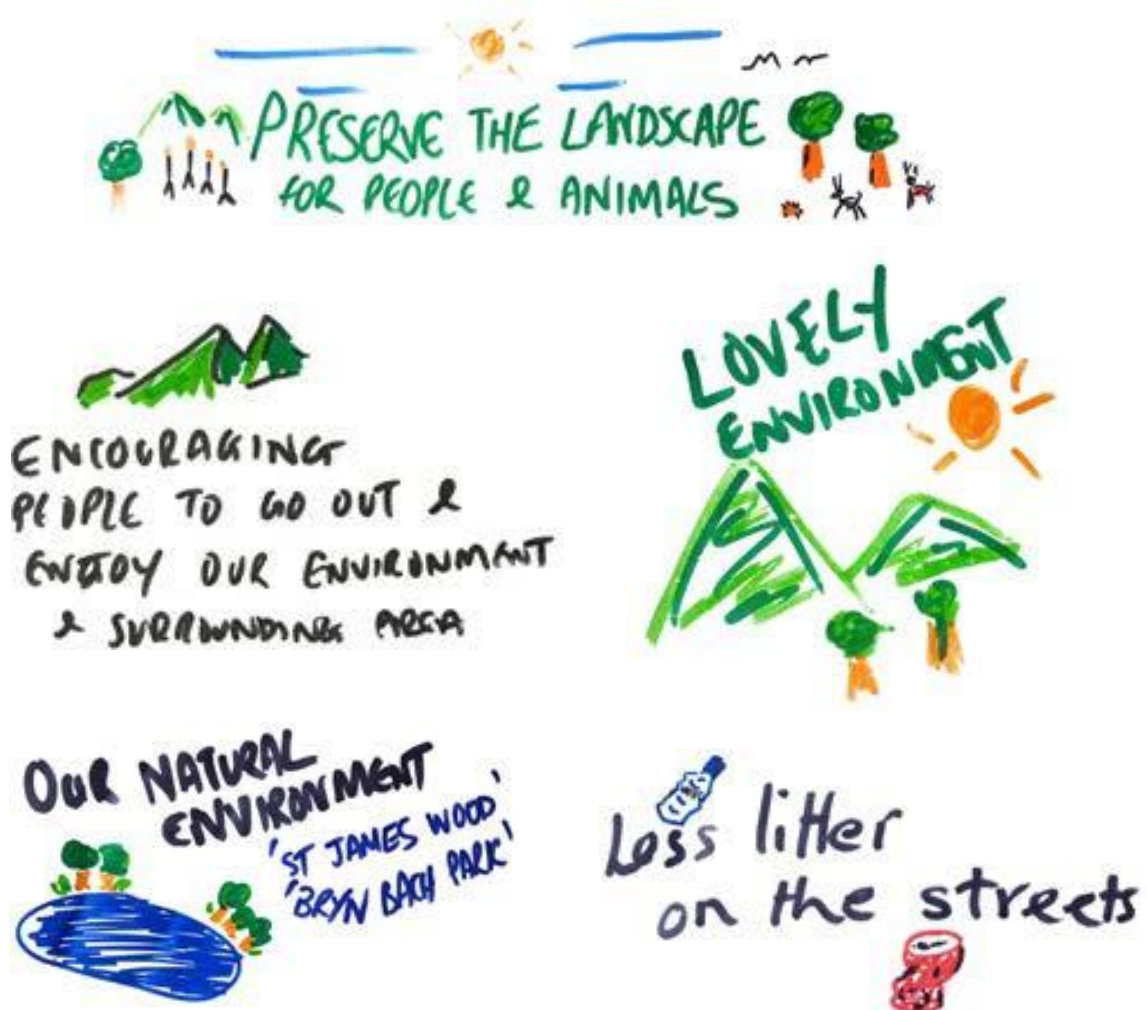 PRESERVE THE LANDSCAPE
FOR PEOPLE & ANIMALS
ENCOURAGING
PEOPLE TO GO OUT &
ENJOY OUR ENVIRONMENT
& SURROUNDING AREA
LOVELY
ENVIRONMENT
OUR NATURAL
ENVIRONMENT
'ST JAMES WOOD'
'BRYN BACH PARK'
Less litter
on the streets